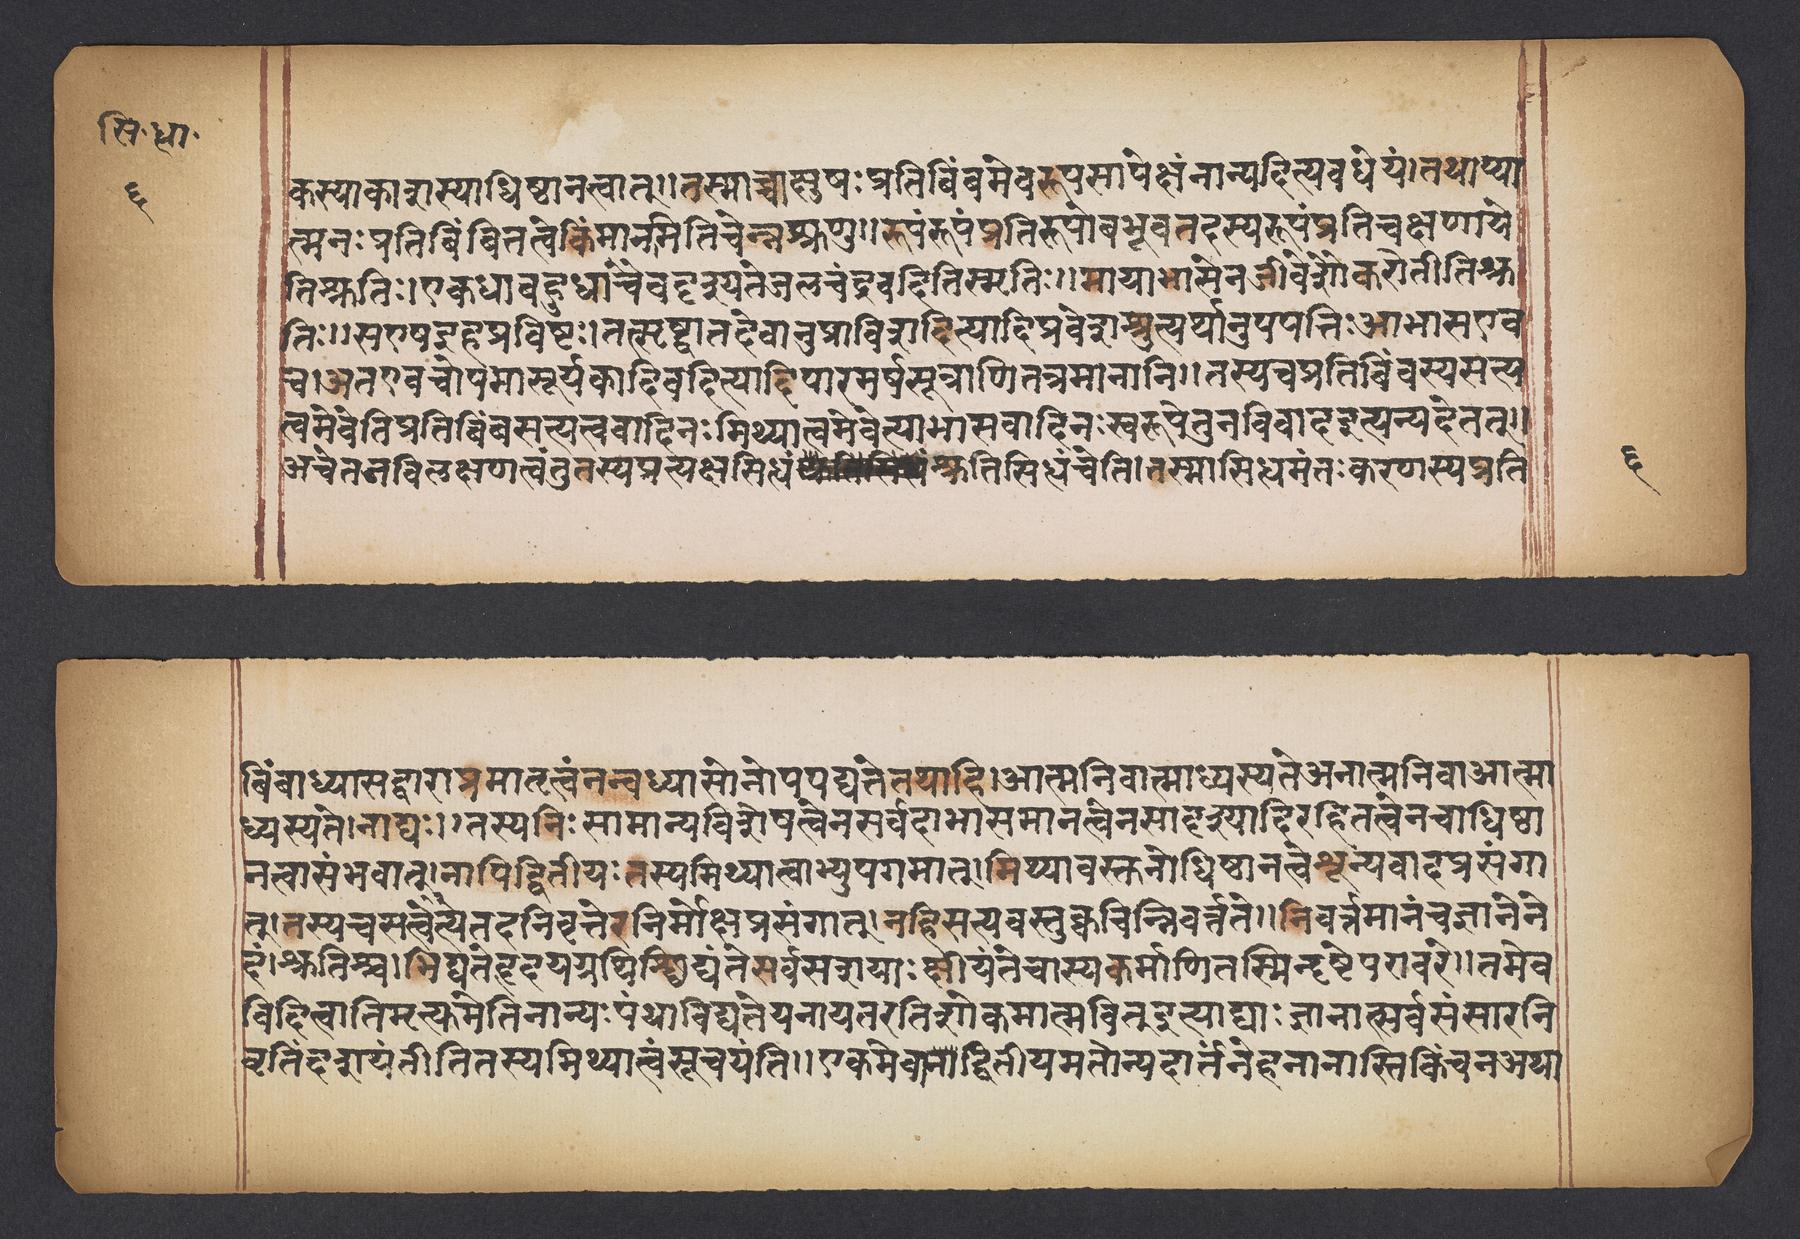 सि॰धा॰
६
कस्याकाशस्याधिष्ठानत्वात्॥तस्माच्चाक्षुषःप्रतिबिंबमेवरूपसापेक्षंनान्यदित्यवधेयं।तथाप्या
त्मनःप्रतिबिंबितत्वेकिंमानमितिचेन्नशृणु॥रूपंरूपंप्रतिरूपोबभूवतदस्यरूपंप्रतिचक्षणाये
तिश्रुतिः।एकधाबहुधाचैवदृश्यतेजलचंद्रवदितिस्मृतिः॥मायाभासेनजीवेशौकरोतीतिश्रु
तिः॥सएषइहप्रविष्टः।तत्सृष्ट्वातदेवानुप्राविशदित्यादिप्रवेशश्रुत्यर्थानुपपत्तिःआभासएव
च।अतएवचोपमासूर्यकादिवदित्यादिपारमर्षसूत्राणितत्रमानानि॥तस्यचप्रतिबिंबस्यसत्य
त्वमेवेतिप्रतिबिंबसत्यत्ववादिनःमिथ्यात्वमेवेत्याभासवादिनःस्वरूपेतुनविवादइत्यन्यदेतत्॥
अचेतनविलक्षणत्वंतुतस्यप्रत्यक्षसिध्धंश्रुतिसिध्धंचेति।तस्मासिध्धमंतःकरणस्यप्रति
६
बिंबाध्यासद्वाराप्रमातृत्वंनन्वध्यासोनोपपद्यतेतथाहि।आत्मनिवात्माध्यस्यतेअनात्मनिवाआत्मा
ध्यस्यते।नाद्यः।तस्यनिःसामान्यविशेषत्वेनसर्वदाभासमानत्वेनसादृश्यादिरहितत्वेनचाधिष्ठा
नत्वासंभवात्।नापिद्वितीयःतस्यमिथ्यात्वाभ्युपगमात्।मिथ्यावस्तुनोधिष्ठानत्वेशून्यवादप्रसंगा
त्।तस्यचसत्वेत्येतदनिवृत्तेरनिर्मोक्षप्रसंगात्।नहिसत्यवस्तुक्वचिन्निवर्त्तते॥निवर्त्तमानंचज्ञानेने
हं।श्रुतिश्च।भिद्यतेहृदयग्रंथिश्छिद्यंतेसर्वसंशयाः।क्षीयंतेचास्यकर्माणितस्मिन्दृष्टेपरावरे॥तमेव
विदित्वातिमृत्युमेतिनान्यःपंथाविद्यतेयनायतरतिशोकमात्मवितुइत्याद्याःज्ञानात्सर्वसंसारनि
वृतिंदर्शयंतीतितस्यमिथ्यात्वंसूचयंति॥एकमेवाद्वितीयमतोन्यदार्तंनेहनानास्तिकिंचनअथा